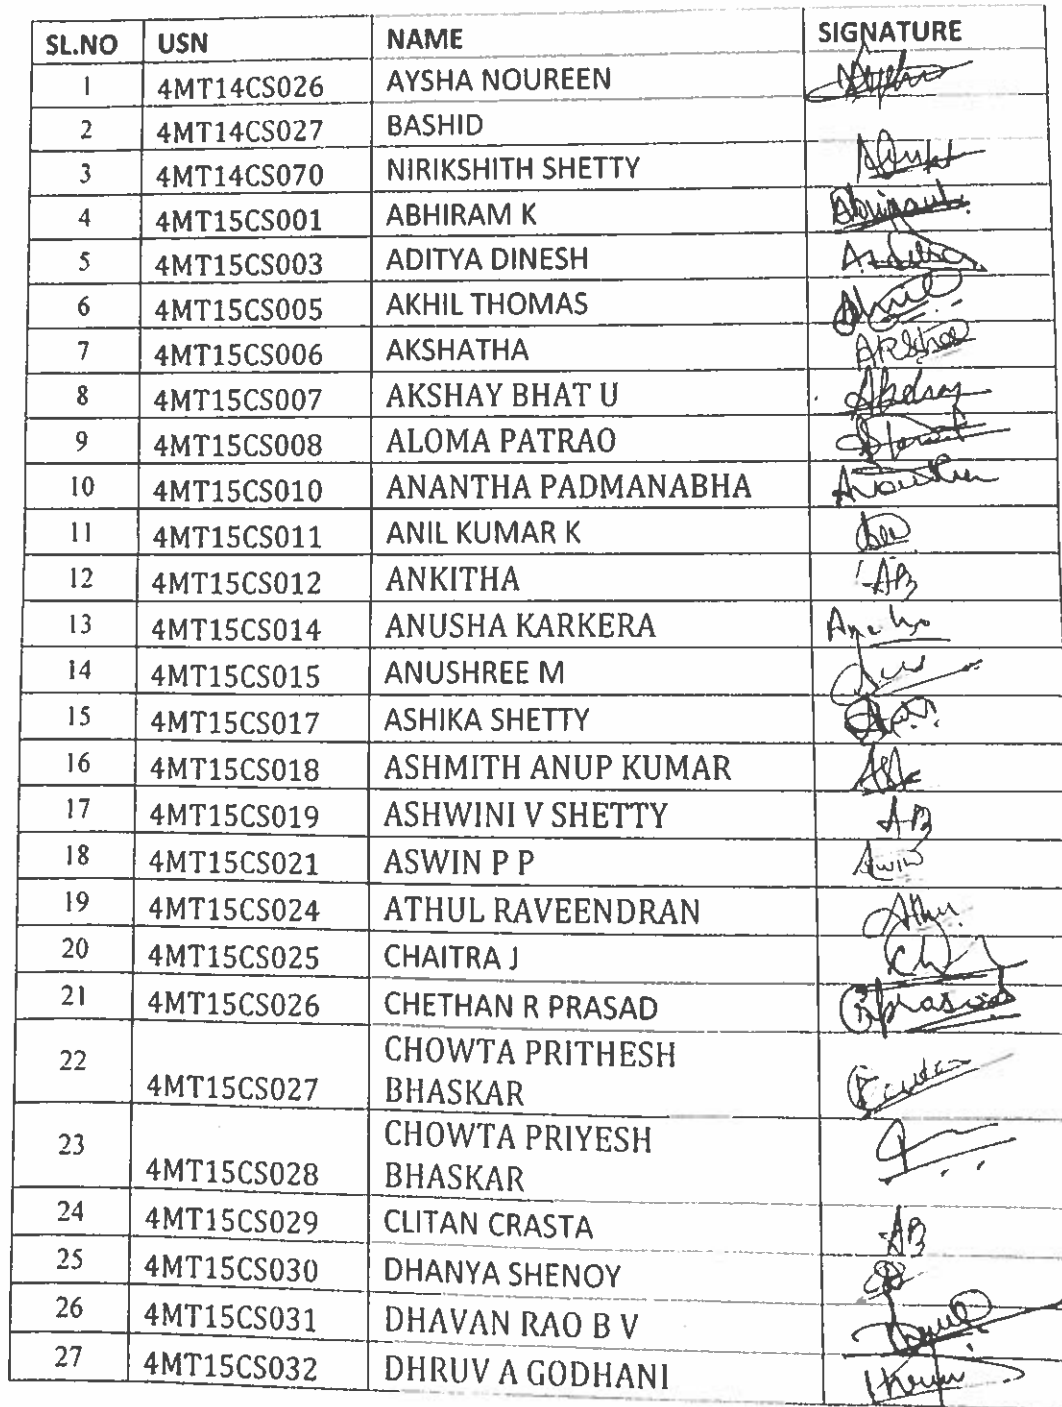 SL.NO USN NAME SIGNATURE
1 4MT14CS026 AYSHA NOUREEN
2 4MT14CS027 BASHID
3 4MT14CS070 NIRIKSHITH SHETTY
4 4MT15CS001 ABHIRAM K
5 4MT15CS003 ADITYA DINESH
6 4MT15CS005 AKHIL THOMAS
7 4MT15CS006 AKSHATHA
8 4MT15CS007 AKSHAY BHAT U
9 4MT15CS008 ALOMA PATRAO
10 4MT15CS010 ANANTHA PADMANABHA
11 4MT15CS011 ANIL KUMAR K
12 4MT15CS012 ANKITHA AB
13 4MT15CS014 ANUSHA KARKERA
14 4MT15CS015 ANUSHREE M
15 4MT15CS017 ASHIKA SHETTY
16 4MT15CS018 ASHMITH ANUP KUMAR
17 4MT15CS019 ASHWINI V SHETTY AB
18 4MT15CS021 ASWIN P P Aswin
19 4MT15CS024 ATHUL RAVEENDRAN
20 4MT15CS025 CHAITRA J
21 4MT15CS026 CHETHAN R PRASAD
22 4MT15CS027 CHOWTA PRITHESH
BHASKAR
23 4MT15CS028 CHOWTA PRIYESH
BHASKAR
24 4MT15CS029 CLITAN CRASTA AB
25 4MT15CS030 DHANYA SHENOY
26 4MT15CS031 DHAVAN RAO B V
27 4MT15CS032 DHRUV A GODHANI